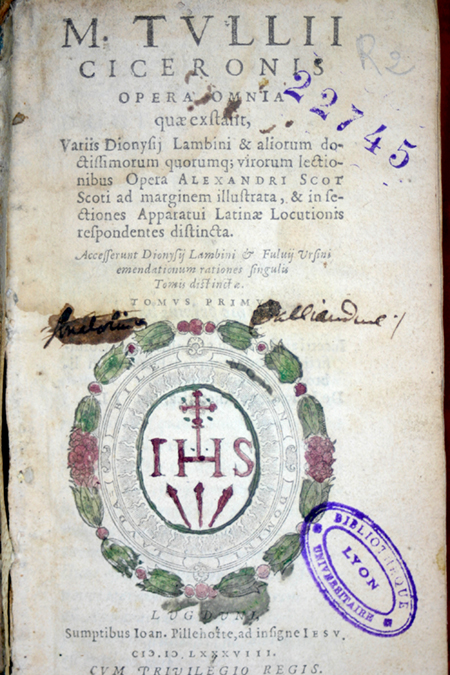 M. TVLLII
CICERONIS
OPERA OMNIA
quæ exstant,
Variis Dionysij Lambini & aliorum do-
ctissimorum quorumq; virorum lectio-
nibus Opera ALEXANDRI SCOT
Scoti ad marginem illustrata, & in se-
ctiones Apparatui Latinæ Locutionis
respondentes distincta.
Accesserunt Dionysij Lambini & Fuluij Vrsini
emendationum rationes singulis
Tomis distinctæ.
TOMVS PRIMVS
R2
22745
IHS
BIBLIOTHEQUE
LYON
UNIVERSITAIRE
LVGDVNI,
Sumptibus Ioan. Pillehotte, ad insigne IESV.
CIƆ.IƆ LXXXVIII.
CVM PRIVILEGIO REGIS.